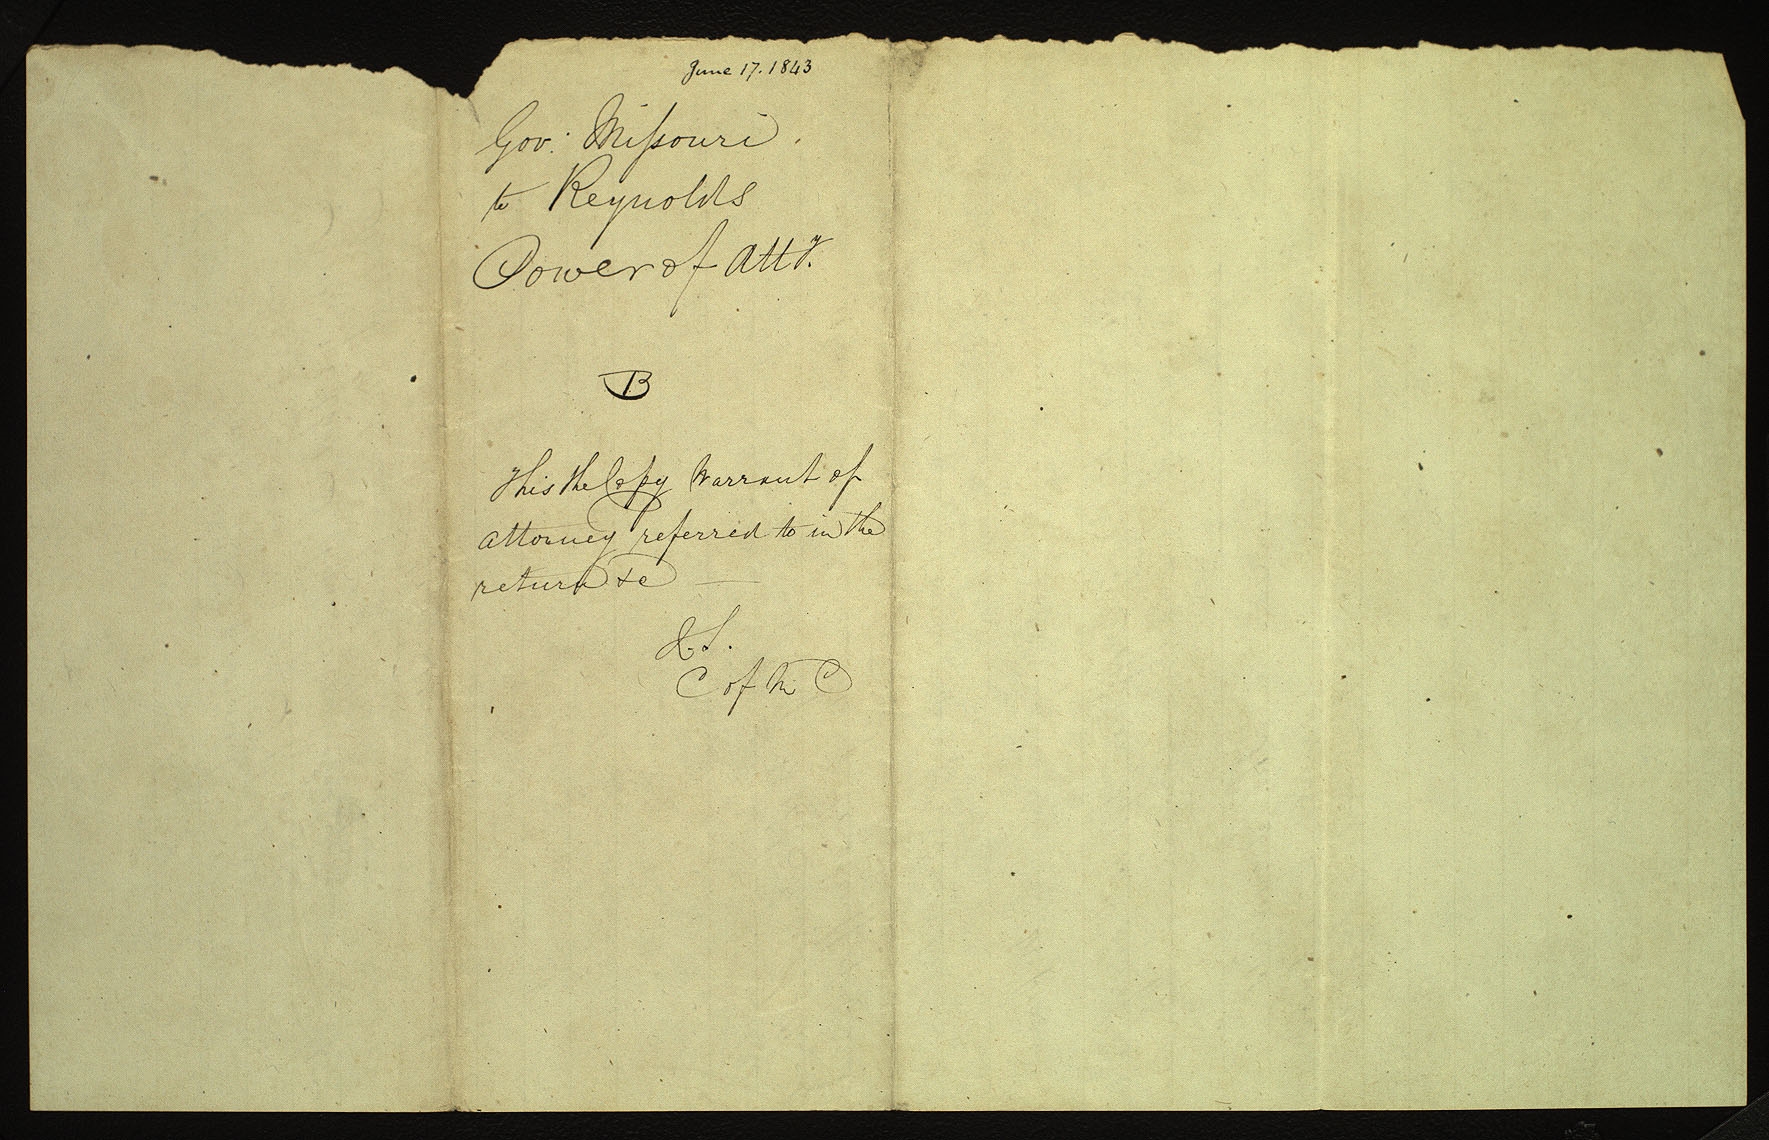 June 17. 1843
Gov. Missouri.
to Reynolds
Power of Atty.
B
This the Copy Warrant of
attorney referred to in the
return &c —
L.S.
C of M C